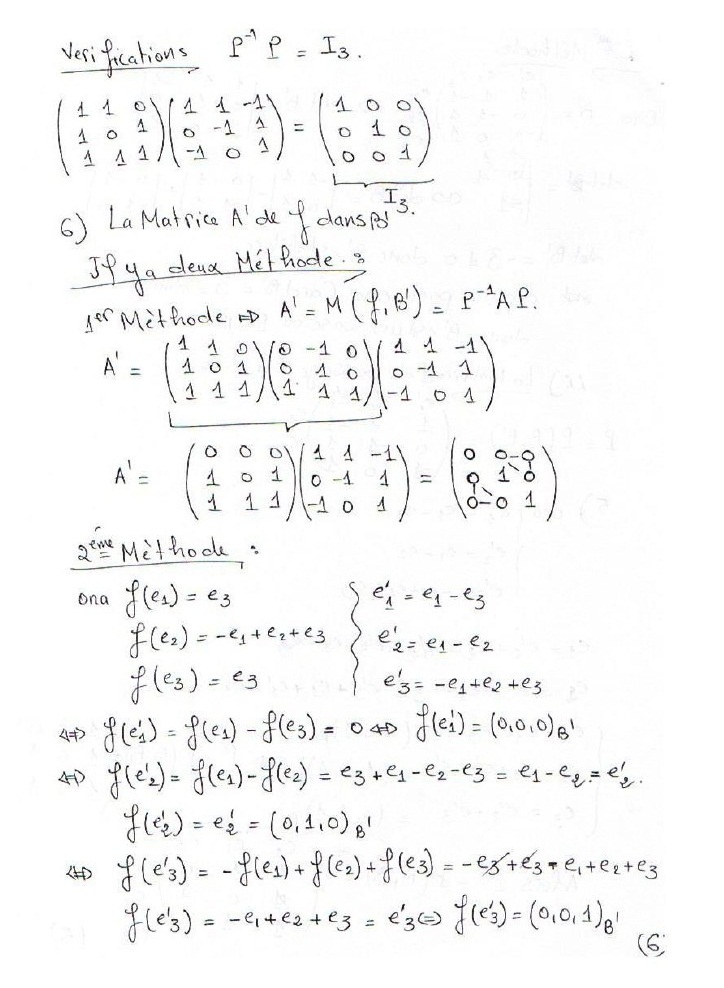 Verifications P⁻¹ P = I₃.
( 1 1 0 ) ( 1 1 -1 ) = ( 1 0 0 )
( 1 0 1 ) ( 0 -1 1 ) ( 0 1 0 )
( 1 1 1 ) ( -1 0 1 ) ( 0 0 1 )
I₃.
6) La Matrice A' de f dans B'
Il y a deux Méthode. :
1er Mèthode ⇒ A' = M (f, B') = P⁻¹AP.
A' = ( 1 1 0 ) ( 0 -1 0 ) ( 1 1 -1 )
( 1 0 1 ) ( 0 1 0 ) ( 0 -1 1 )
( 1 1 1 ) ( 1 1 1 ) ( -1 0 1 )
A' = ( 0 0 0 ) ( 1 1 -1 ) = ( 0 0 0 )
( 1 0 1 ) ( 0 -1 1 ) ( 0 1 0 )
( 1 1 1 ) ( -1 0 1 ) ( 0 0 1 )
2éme Mèthode :
ona f(e₁) = e₃ e'₁ = e₁ - e₃
f(e₂) = -e₁ + e₂ + e₃ e'₂ = e₁ - e₂
f(e₃) = e₃ e'₃ = -e₁ + e₂ + e₃
⇔ f(e'₁) = f(e₁) - f(e₃) = 0 ⇔ f(e'₁) = (0,0,0)B'
⇔ f(e'₂) = f(e₁) - f(e₂) = e₃ + e₁ - e₂ - e₃ = e₁ - e₂ = e'₂.
f(e'₂) = e'₂ = (0,1,0)B'
⇔ f(e'₃) = -f(e₁) + f(e₂) + f(e₃) = -e₃ + e₃ - e₁ + e₂ + e₃
f(e'₃) = -e₁ + e₂ + e₃ = e'₃ ⇔ f(e'₃) = (0,0,1)B'
(6